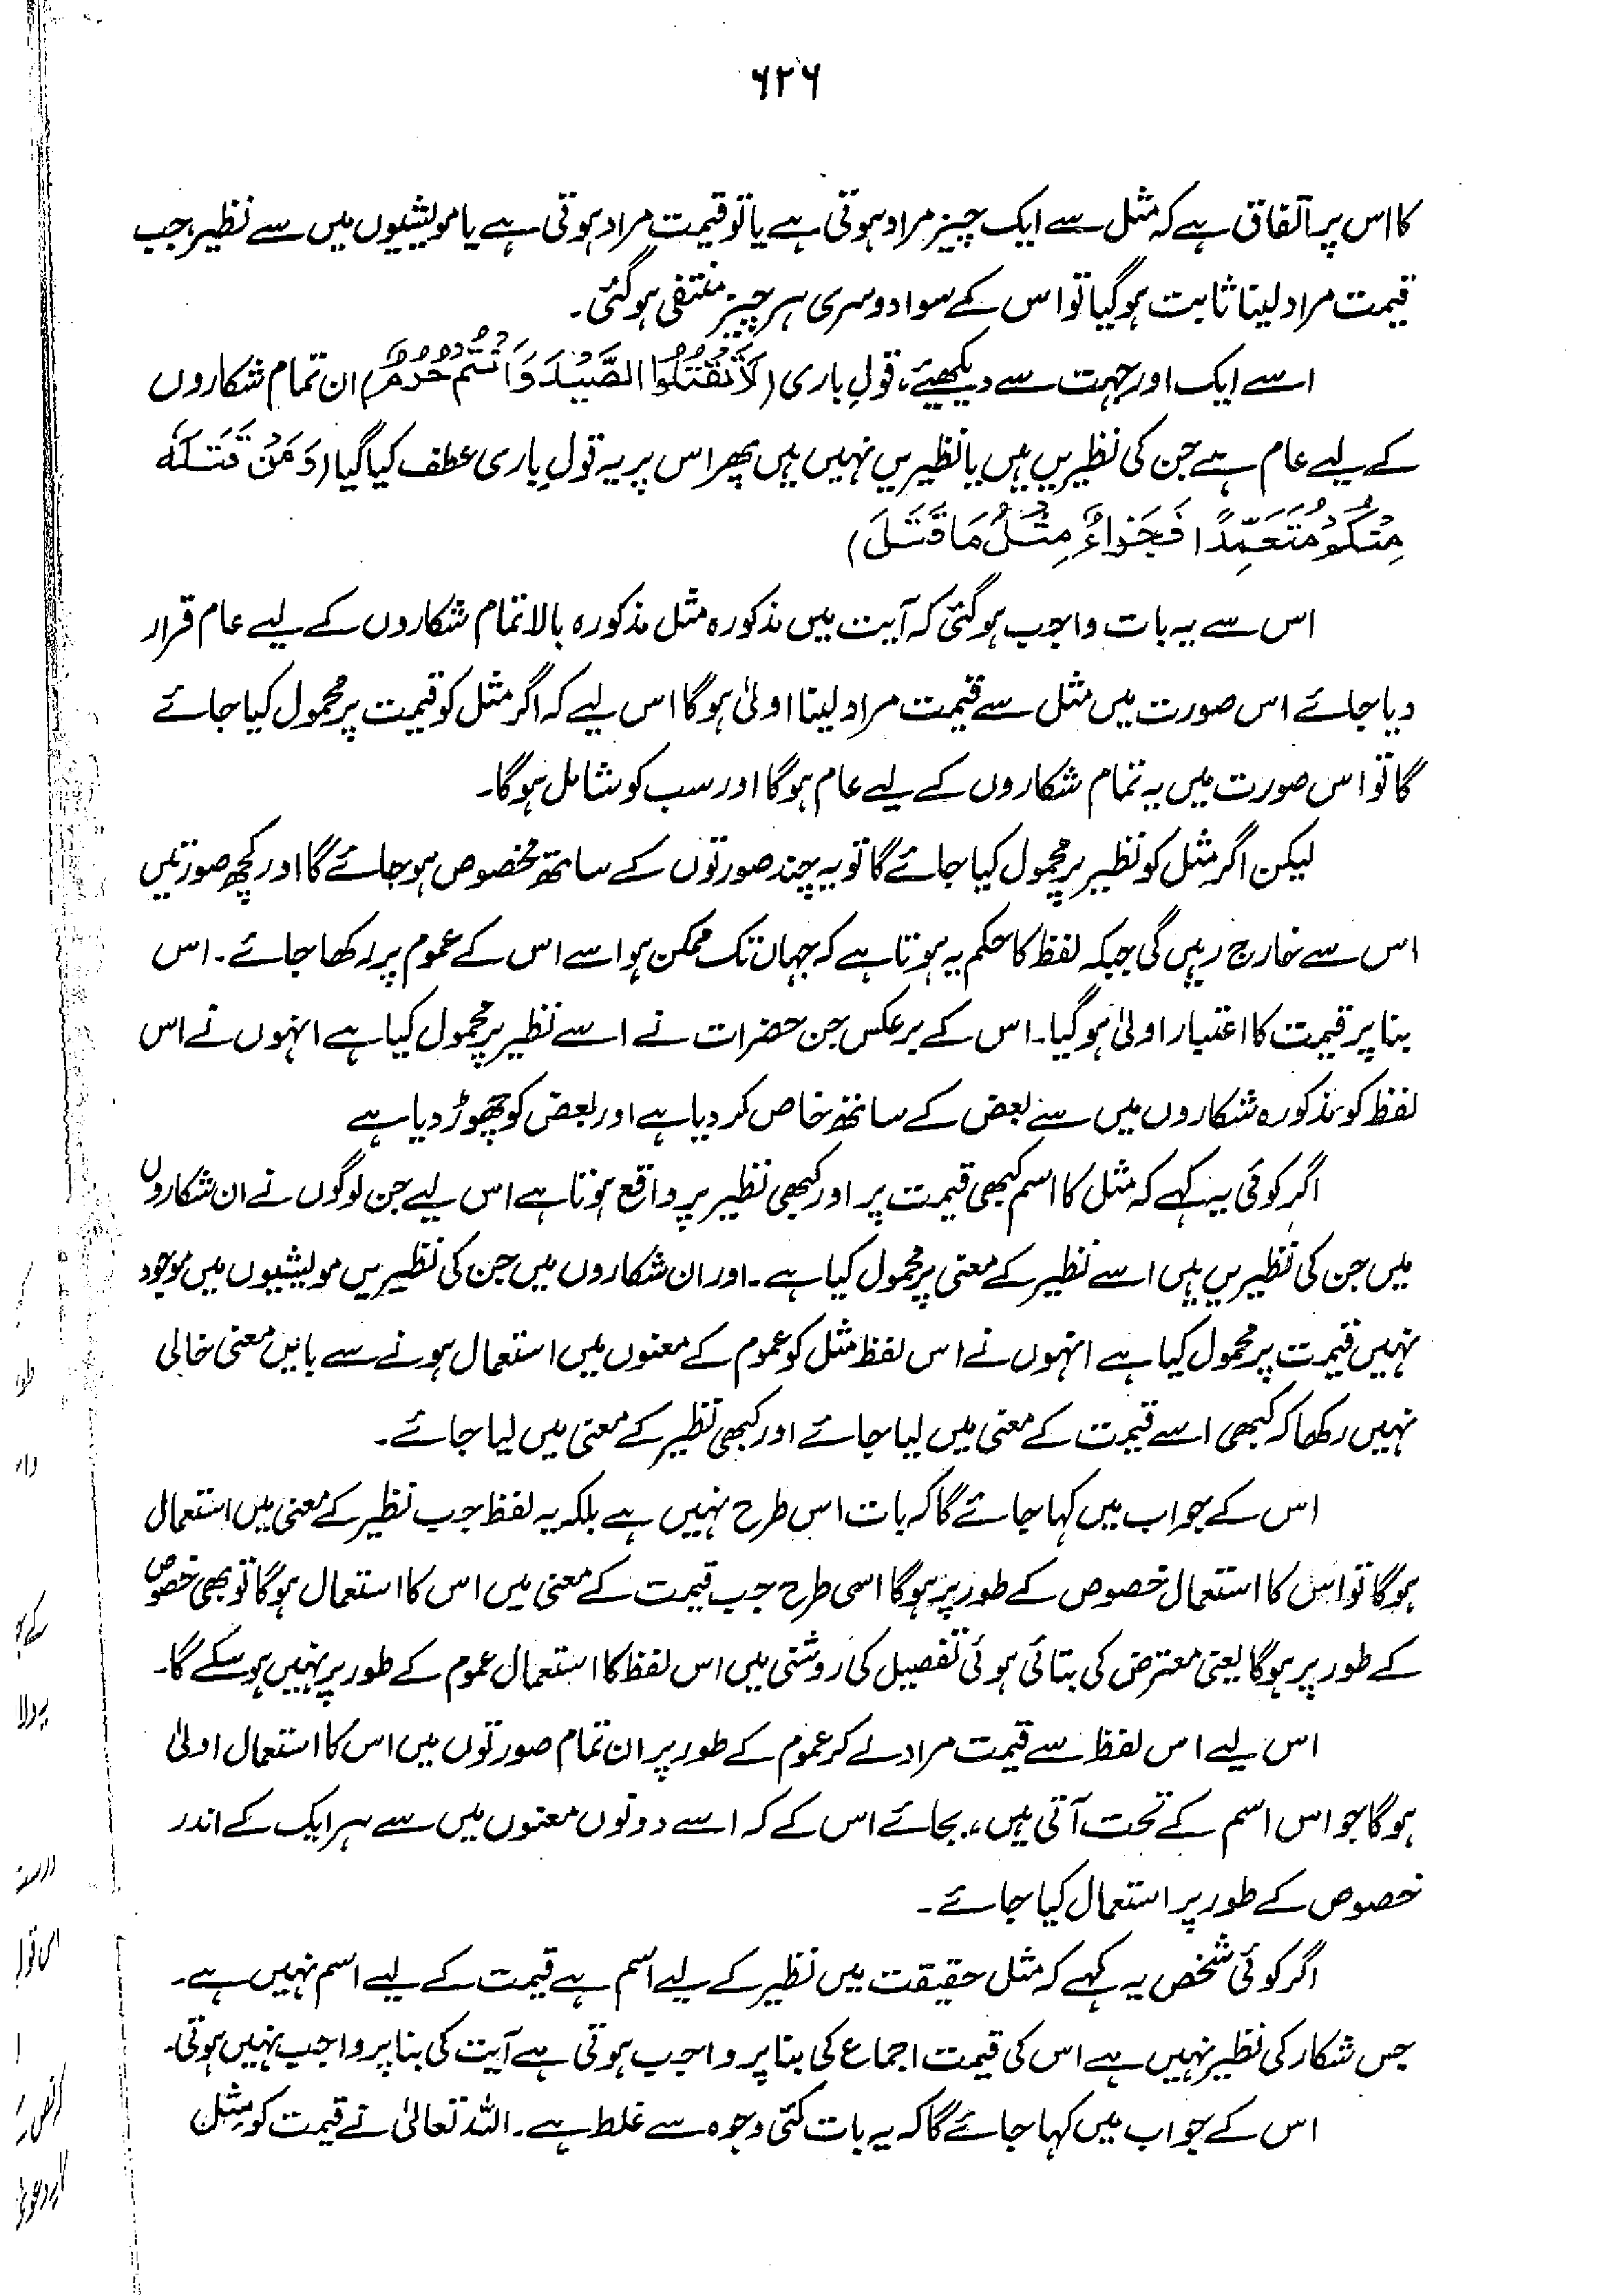 ۶۲۶
کا اس پر اتفاق ہے کہ مثل سے ایک چیز مراد ہوتی ہے یا تو قیمت مراد ہوتی ہے یا مویشیوں میں سے نظیر، جب
قیمت مراد لینا ثابت ہوگیا تو اس کے سوا دوسری ہر چیز منتفی ہوگئی۔
اسے ایک اور جہت سے دیکھیئے، قولِ باری (لَا تَقْتُلُوا الصَّيْدَ وَاَنْتُمْ حُرُمٌ) ان تمام شکاروں
کے لیے عام ہے جن کی نظیریں ہیں یا نظیریں نہیں ہیں پھر اس پر یہ قولِ باری عطف کیا گیا (وَمَنْ قَتَلَهٗ
مِنْكُمْ مُتَعَمِّدًا فَجَزَاءٌ مِثْلُ مَا قَتَلَ)
اس سے یہ بات واجب ہوگئی کہ آیت میں مذکورہ مثل مذکورہ بالا تمام شکاروں کے لیے عام قرار
دیا جائے اس صورت میں مثل سے قیمت مراد لینا اولیٰ ہوگا اس لیے کہ اگر مثل کو قیمت پر محمول کیا جائے
گا تو اس صورت میں یہ تمام شکاروں کے لیے عام ہوگا اور سب کو شامل ہوگا۔
لیکن اگر مثل کو نظیر پر محمول کیا جائے گا تو یہ چند صورتوں کے ساتھ مخصوص ہو جائے گا اور کچھ صورتیں
اس سے خارج رہیں گی جبکہ لفظ کا حکم یہ ہوتا ہے کہ جہاں تک ممکن ہو اسے اس کے عموم پر رکھا جائے۔ اس
بنا پر قیمت کا اعتبار اولیٰ ہوگیا۔ اس کے برعکس جن حضرات نے اسے نظیر پر محمول کیا ہے انہوں نے اس
لفظ کو مذکورہ شکاروں میں سے بعض کے ساتھ خاص کر دیا ہے اور بعض کو چھوڑ دیا ہے
اگر کوئی یہ کہے کہ مثل کا اسم کبھی قیمت پر اور کبھی نظیر پر واقع ہوتا ہے اس لیے جن لوگوں نے ان شکاروں
میں جن کی نظیریں ہیں اسے نظیر کے معنی پر محمول کیا ہے۔ اور ان شکاروں میں جن کی نظیریں مویشیوں میں موجود
نہیں قیمت پر محمول کیا ہے انہوں نے اس لفظ مثل کو عموم کے معنوں میں استعمال ہونے سے بایں معنی خالی
نہیں رکھا کہ کبھی اسے قیمت کے معنی میں لیا جائے اور کبھی نظیر کے معنی میں لیا جائے۔
اس کے جواب میں کہا جائے گا کہ بات اس طرح نہیں ہے بلکہ یہ لفظ جب نظیر کے معنی میں استعمال
ہوگا تو اس کا استعمال خصوص کے طور پر ہوگا اسی طرح جب قیمت کے معنی میں اس کا استعمال ہوگا تو بھی خصوص
کے طور پر ہوگا یعنی معترض کی بتائی ہوئی تفصیل کی روشنی میں اس لفظ کا استعمال عموم کے طور پر نہیں ہوسکے گا۔
اس لیے اس لفظ سے قیمت مراد لے کر عموم کے طور پر ان تمام صورتوں میں اس کا استعمال اولیٰ
ہوگا جو اس اسم کے تحت آتی ہیں، بجائے اس کے کہ اسے دونوں معنوں میں سے ہر ایک کے اندر
خصوص کے طور پر استعمال کیا جائے۔
اگر کوئی شخص یہ کہے کہ مثل حقیقت میں نظیر کے لیے اسم ہے قیمت کے لیے اسم نہیں ہے۔
جس شکار کی نظیر نہیں ہے اس کی قیمت اجماع کی بنا پر واجب ہوتی ہے آیت کی بنا پر واجب نہیں ہوتی۔
اس کے جواب میں کہا جائے گا کہ یہ بات کئی وجوہ سے غلط ہے۔ اللہ تعالیٰ نے قیمت کو مِثل